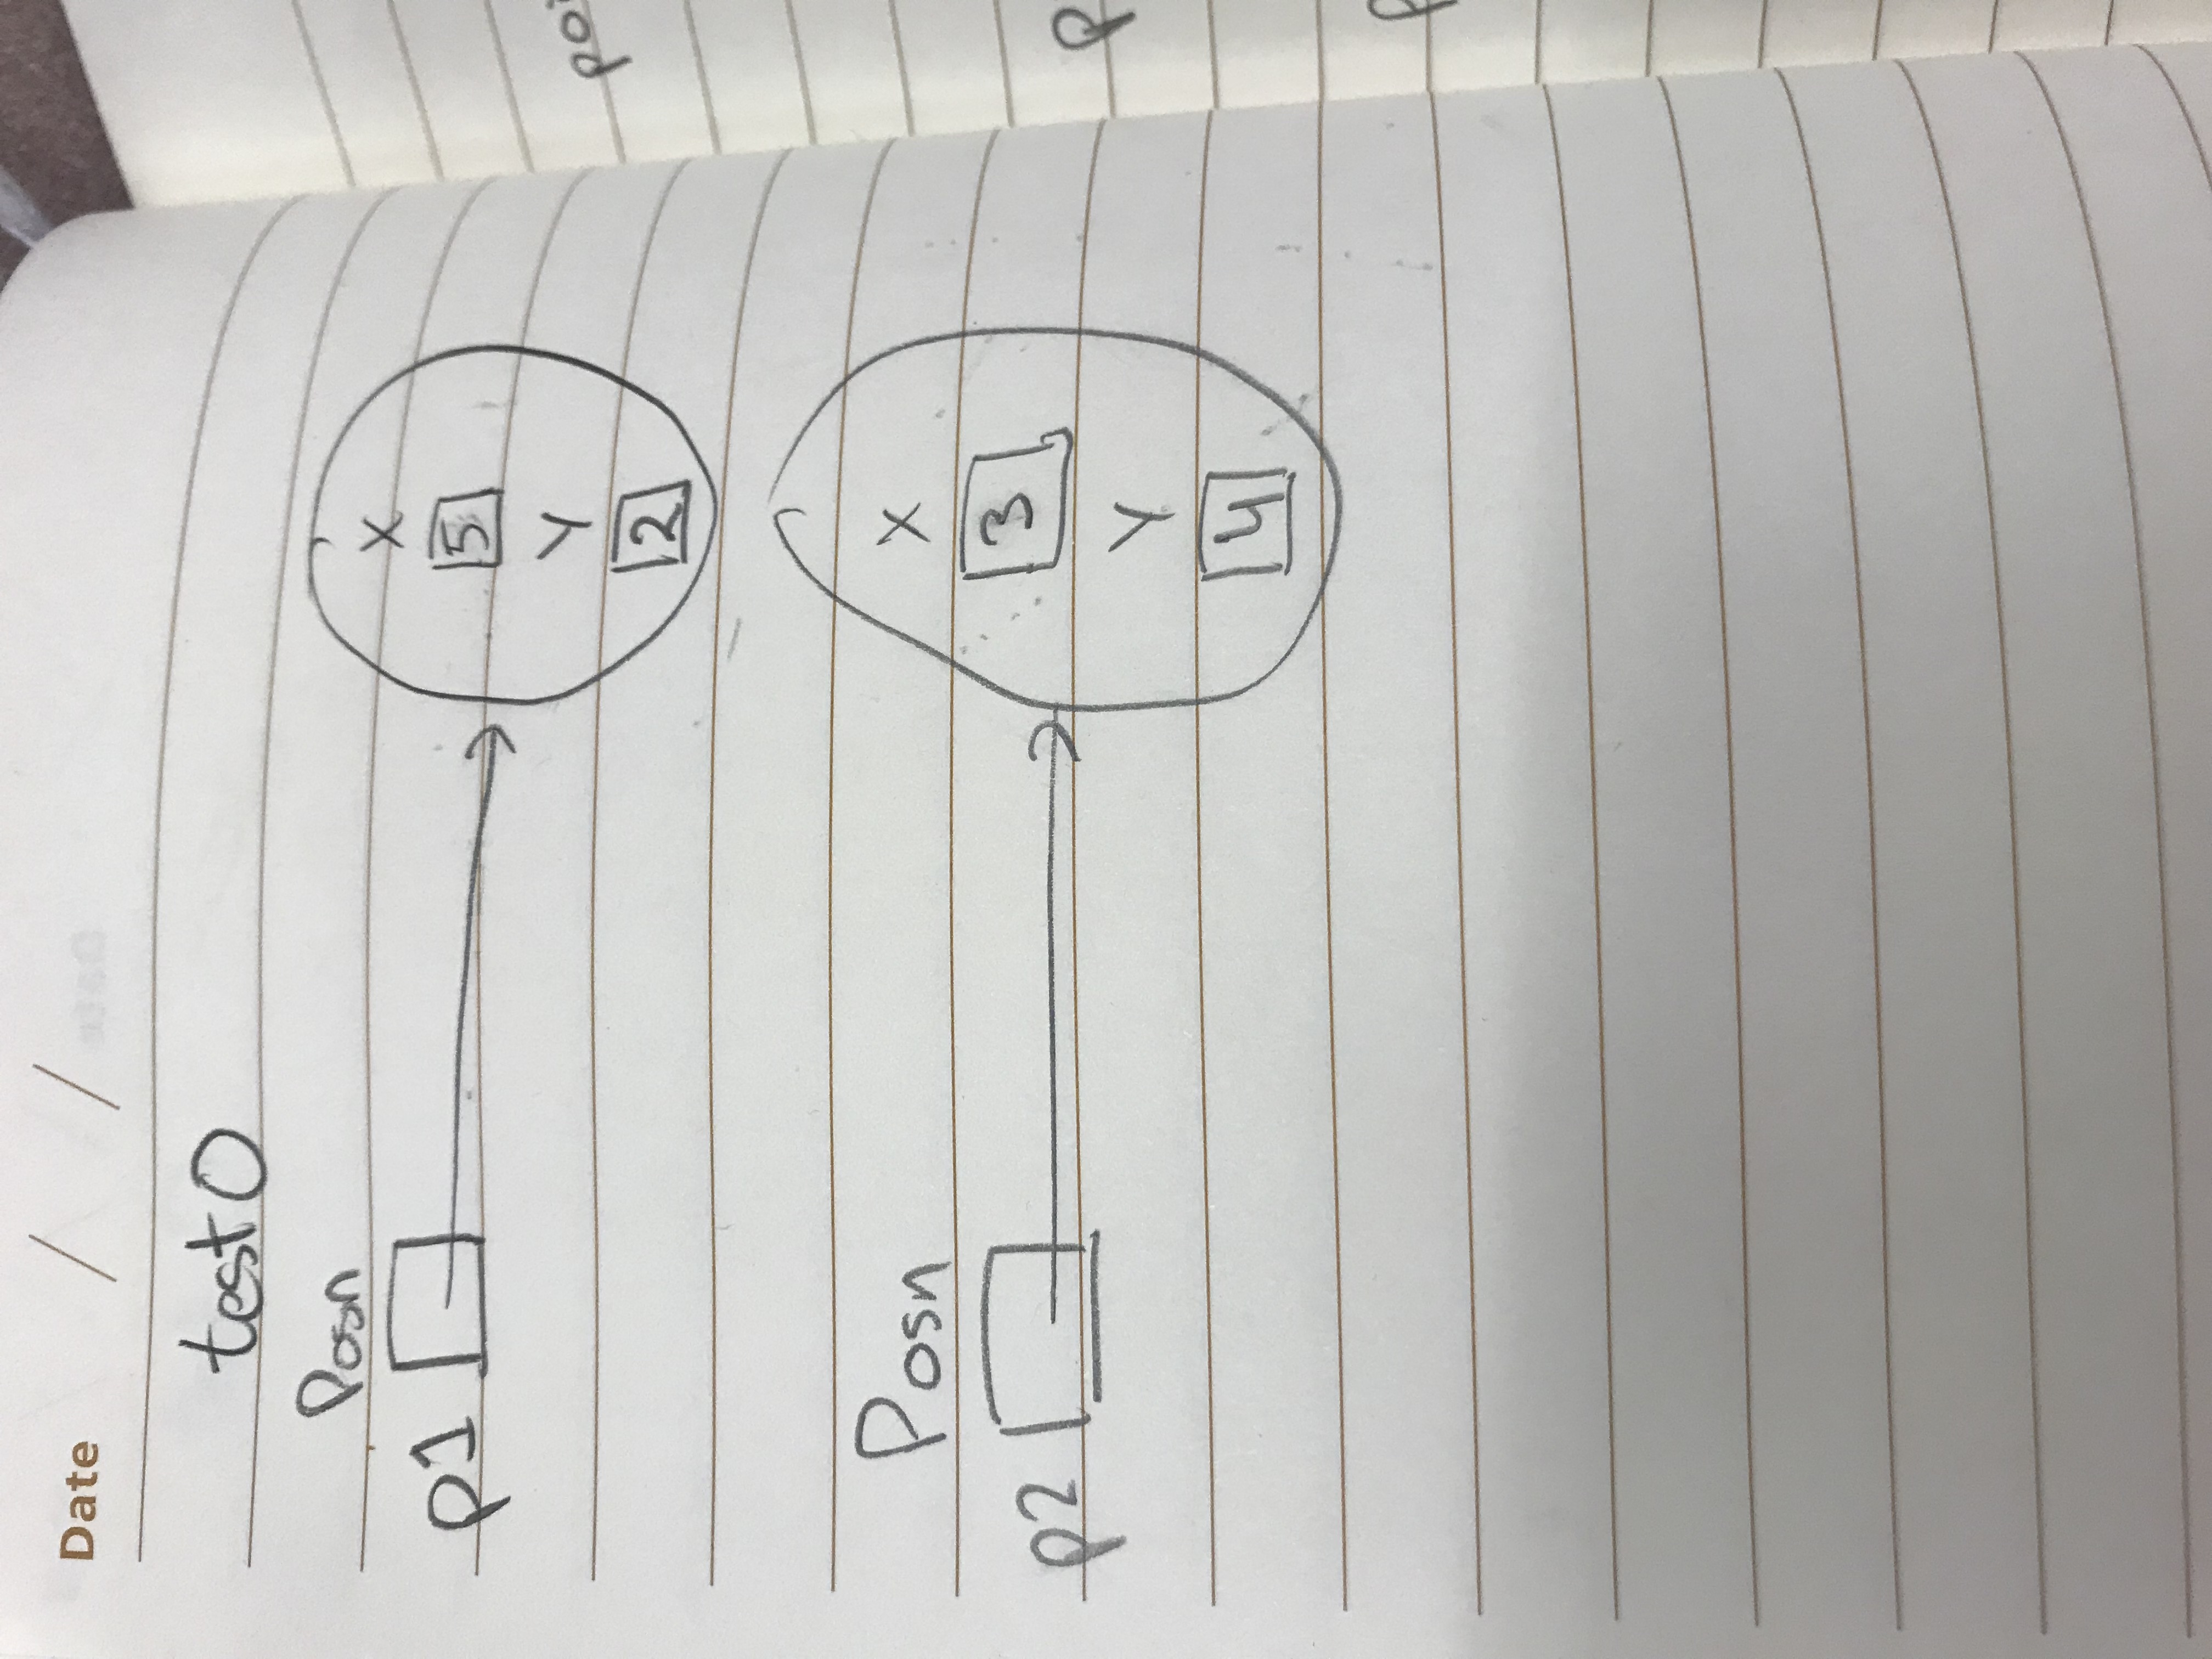 Date / /
test0
Posn
p1
X
5
Y
2
Posn
p2
X
3
Y
4